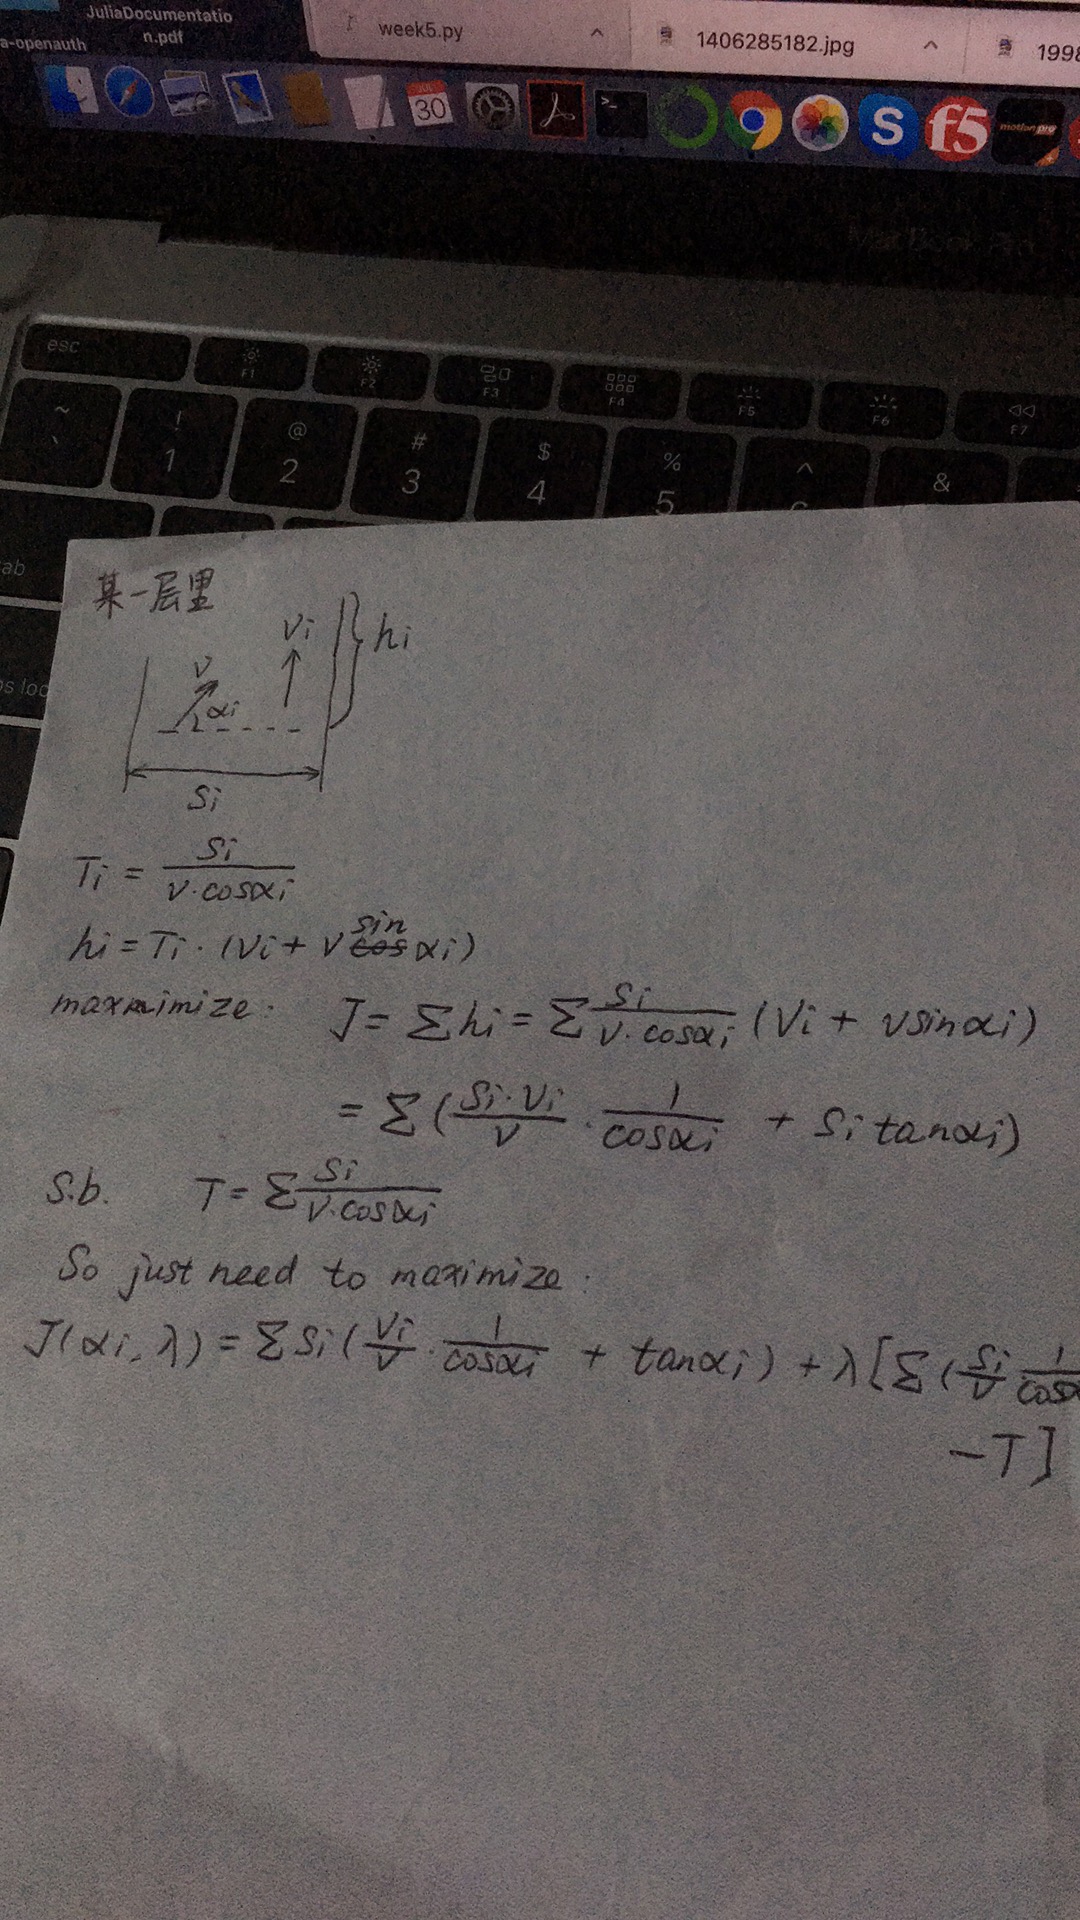 JuliaDocumentatio
n.pdf
a-openauth
week5.py
1406285182.jpg
1998
30
S
f5
motion pro
MacBook Pro
esc
F1
F2
F3
F4
F5
F6
F7
~
!
@
#
$
%
^
&
`
1
2
3
4
5
ab
ps loc
某一层里
Vi
hi
V
αi
Si
Ti = Si / (V·cosαi)
hi = Ti · (Vi + V sin αi)
maxmimize: J = Σhi = Σ Si / (V·cosαi) (Vi + Vsinαi)
= Σ (Si·Vi / V · 1 / cosαi + Si tanαi)
S.b. T = Σ Si / (V·cosαi)
So just need to maximize:
J(αi, λ) = ΣSi (Vi / V · 1 / cosαi + tanαi) + λ[Σ (Si / V 1 / cosα
-T]